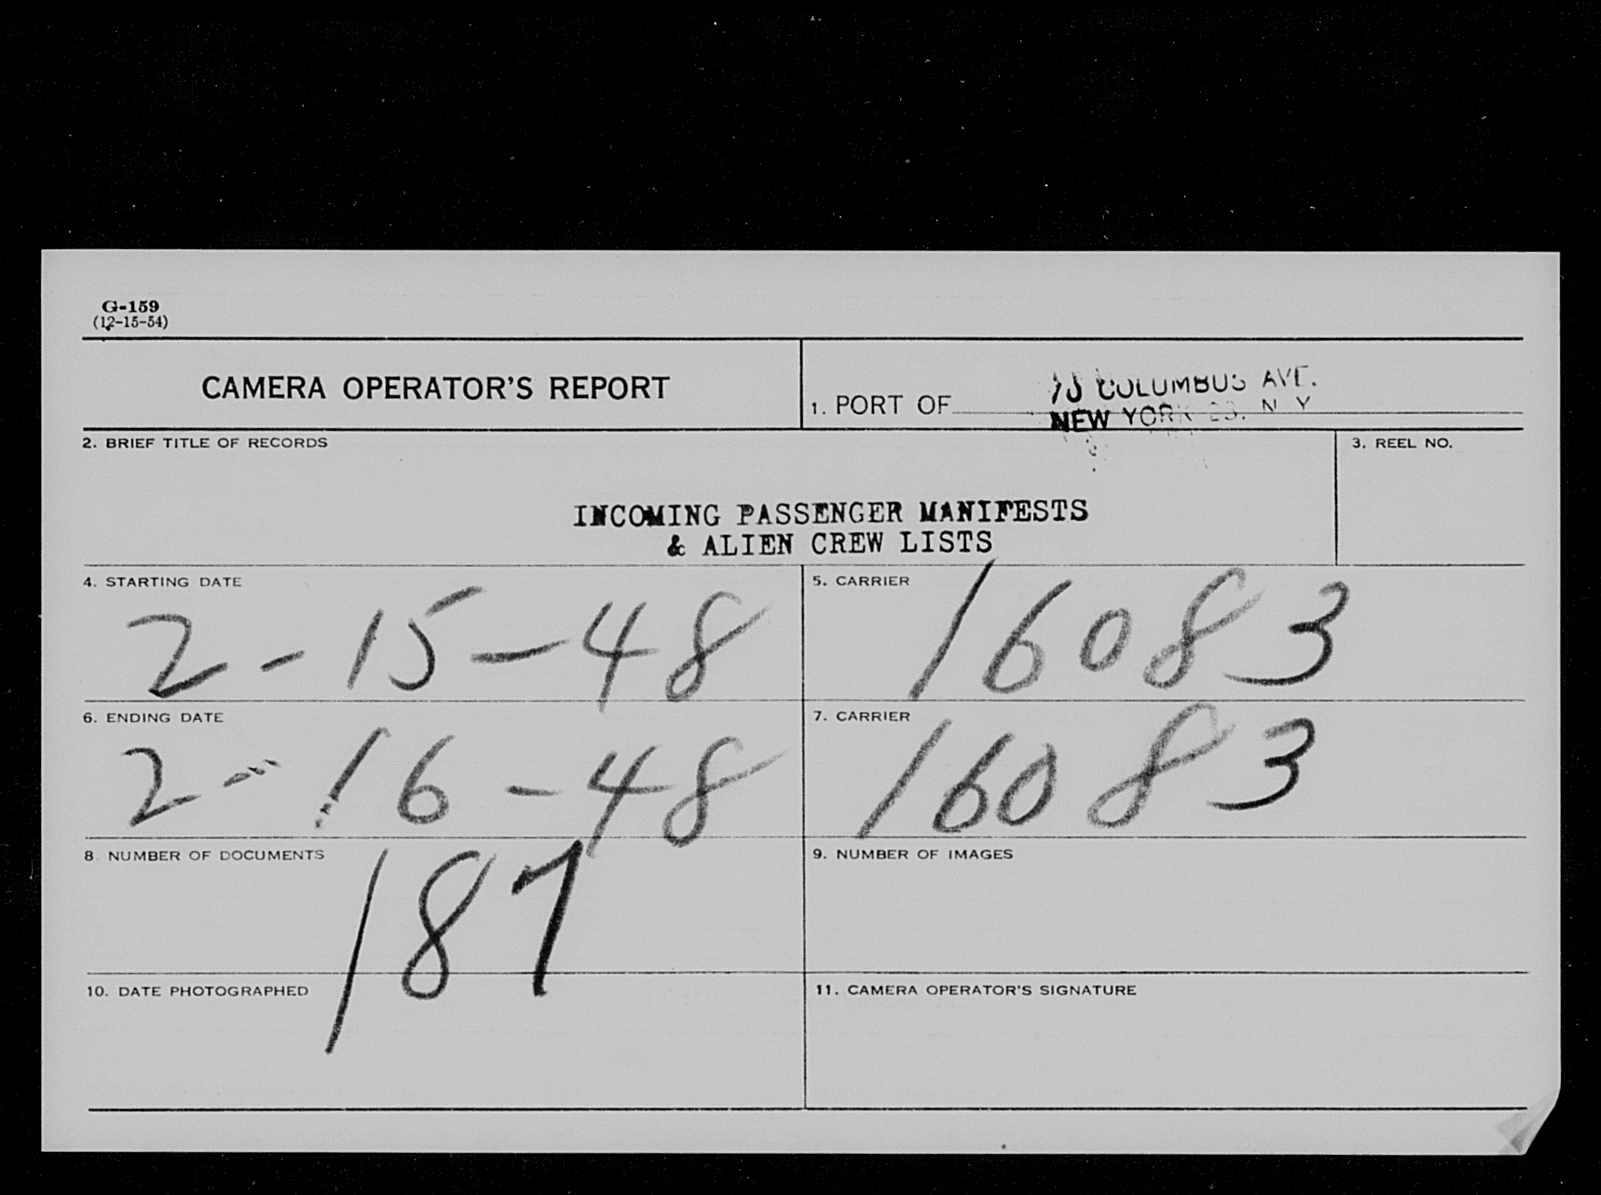 G-159
(12-15-54)
CAMERA OPERATOR'S REPORT
1. PORT OF
COLUMBUS AVE.
NEW YORK N Y
2. BRIEF TITLE OF RECORDS
3. REEL NO.
INCOMING PASSENGER MANIFESTS
& ALIEN CREW LISTS
4. STARTING DATE
2-15-48
5. CARRIER
16083
6. ENDING DATE
2-16-48
7. CARRIER
16083
8. NUMBER OF DOCUMENTS
187
9. NUMBER OF IMAGES
10. DATE PHOTOGRAPHED
11. CAMERA OPERATOR'S SIGNATURE